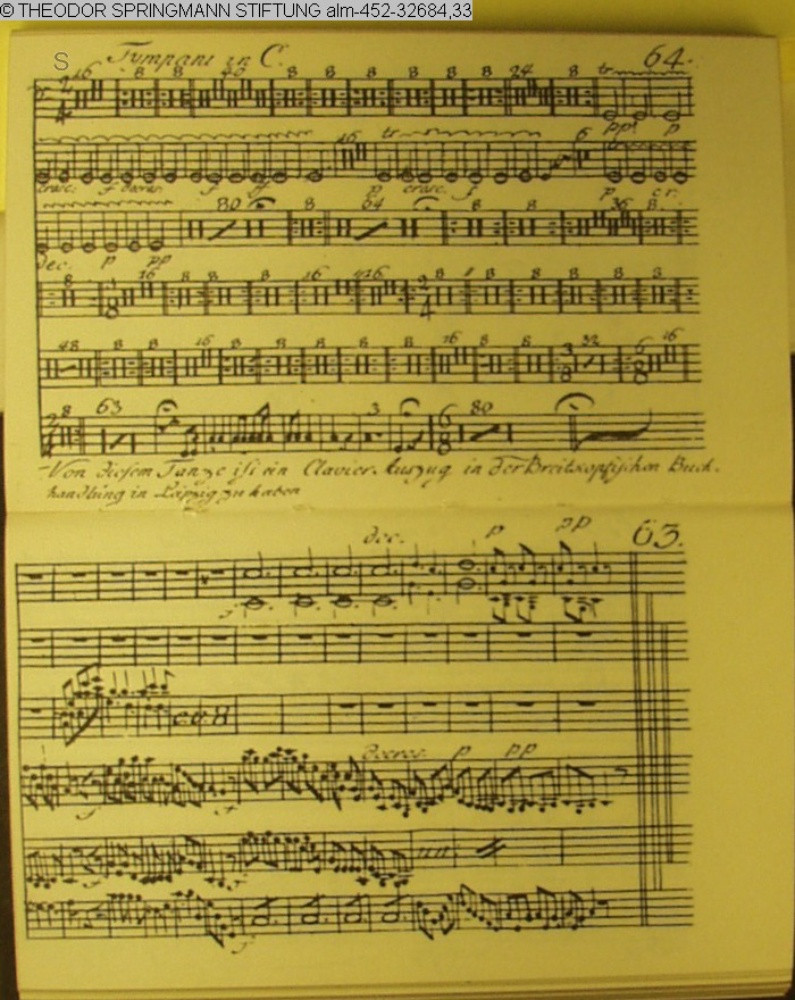 © THEODOR SPRINGMANN STIFTUNG alm-452-32684,33
S
Tympani in C.
64.
16 8 8 40 8 8 8 8 8 8 24 8 tr
pp p
16 tr 6
cresc. f decres. f ff p cresc. f p cr.
80 8 64 8 8 36 8
dec. p pp
8 16 8 8 8 16 416 8 8 8 8 8 3
48 8 8 16 8 8 8 8 8 16 8 8 32 16
8 63 3 80
Von diesem Tanze ist ein Clavier-Auszug in der Breitkopfischen Buch-
handlung in Leipzig zu haben
63.
dec. p pp
decres. p pp